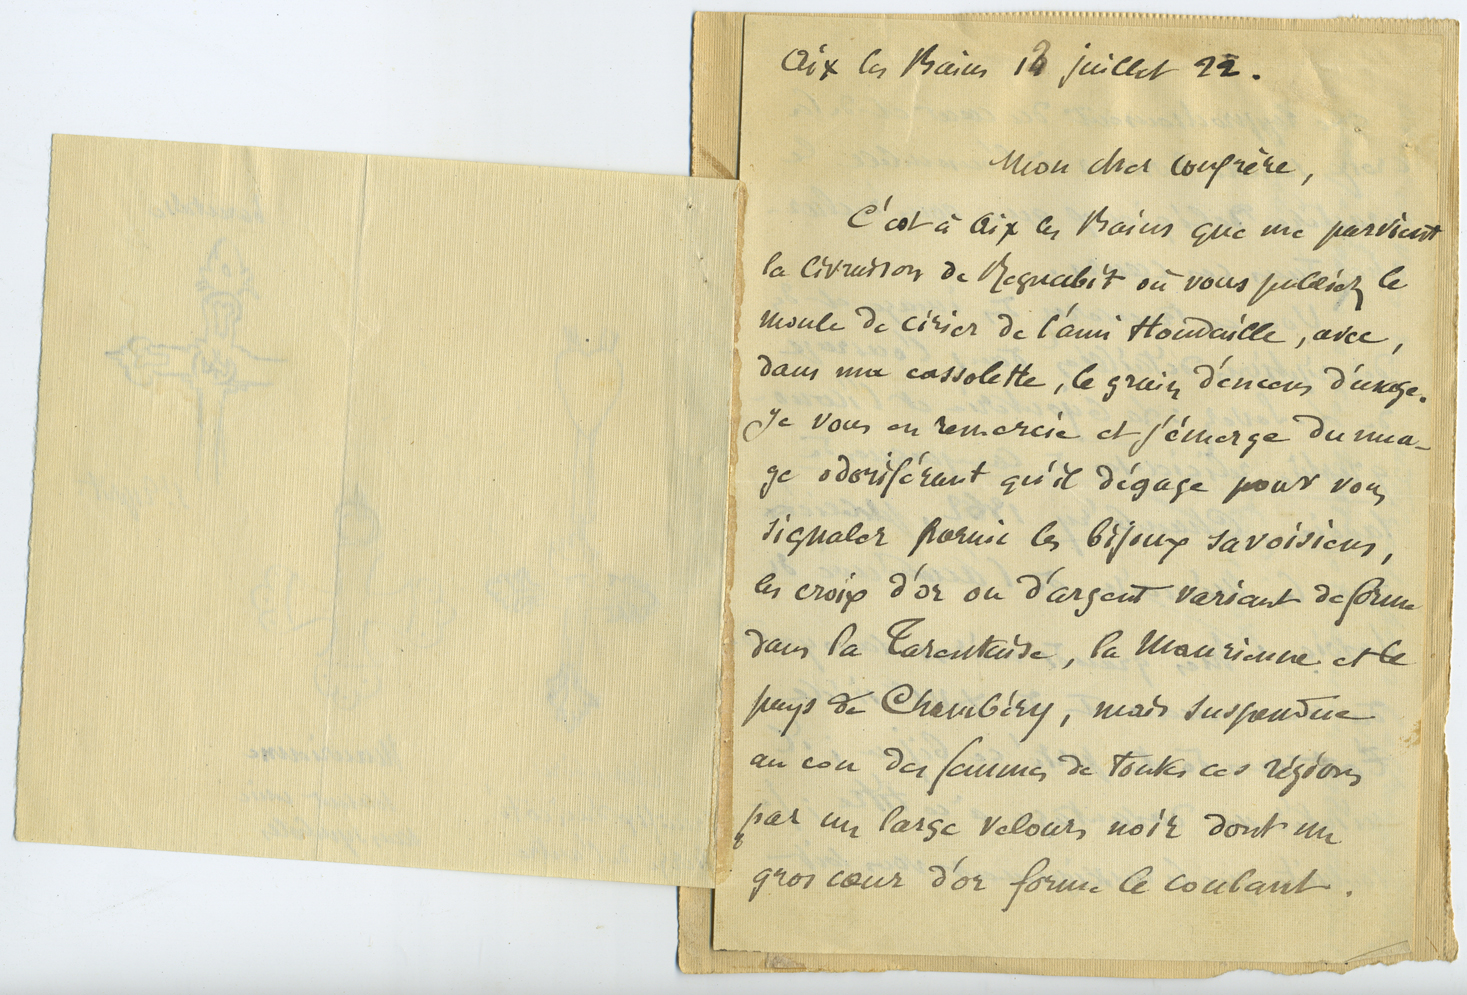 Aix les Bains 18 juillet 22.
Mon cher confrère,
C'est à Aix les Bains que me parvient
la livraison de Regnabit où vous publiez le
moule de cirier de l'ami Houdaille, avec,
dans ma cassolette, le grain d'encens d'usage.
Je vous en remercie et j'émerge du nua-
ge odoriférant qu'il dégage pour vous
signaler parmi les bijoux savoisiens,
les croix d'or ou d'argent variant de forme
dans la Tarentaise, la Maurienne et le
pays de Chambéry, mais suspendue
au cou des femmes de toutes ces régions
par un large velours noir dont un
gros cœur d'or forme le coulant.